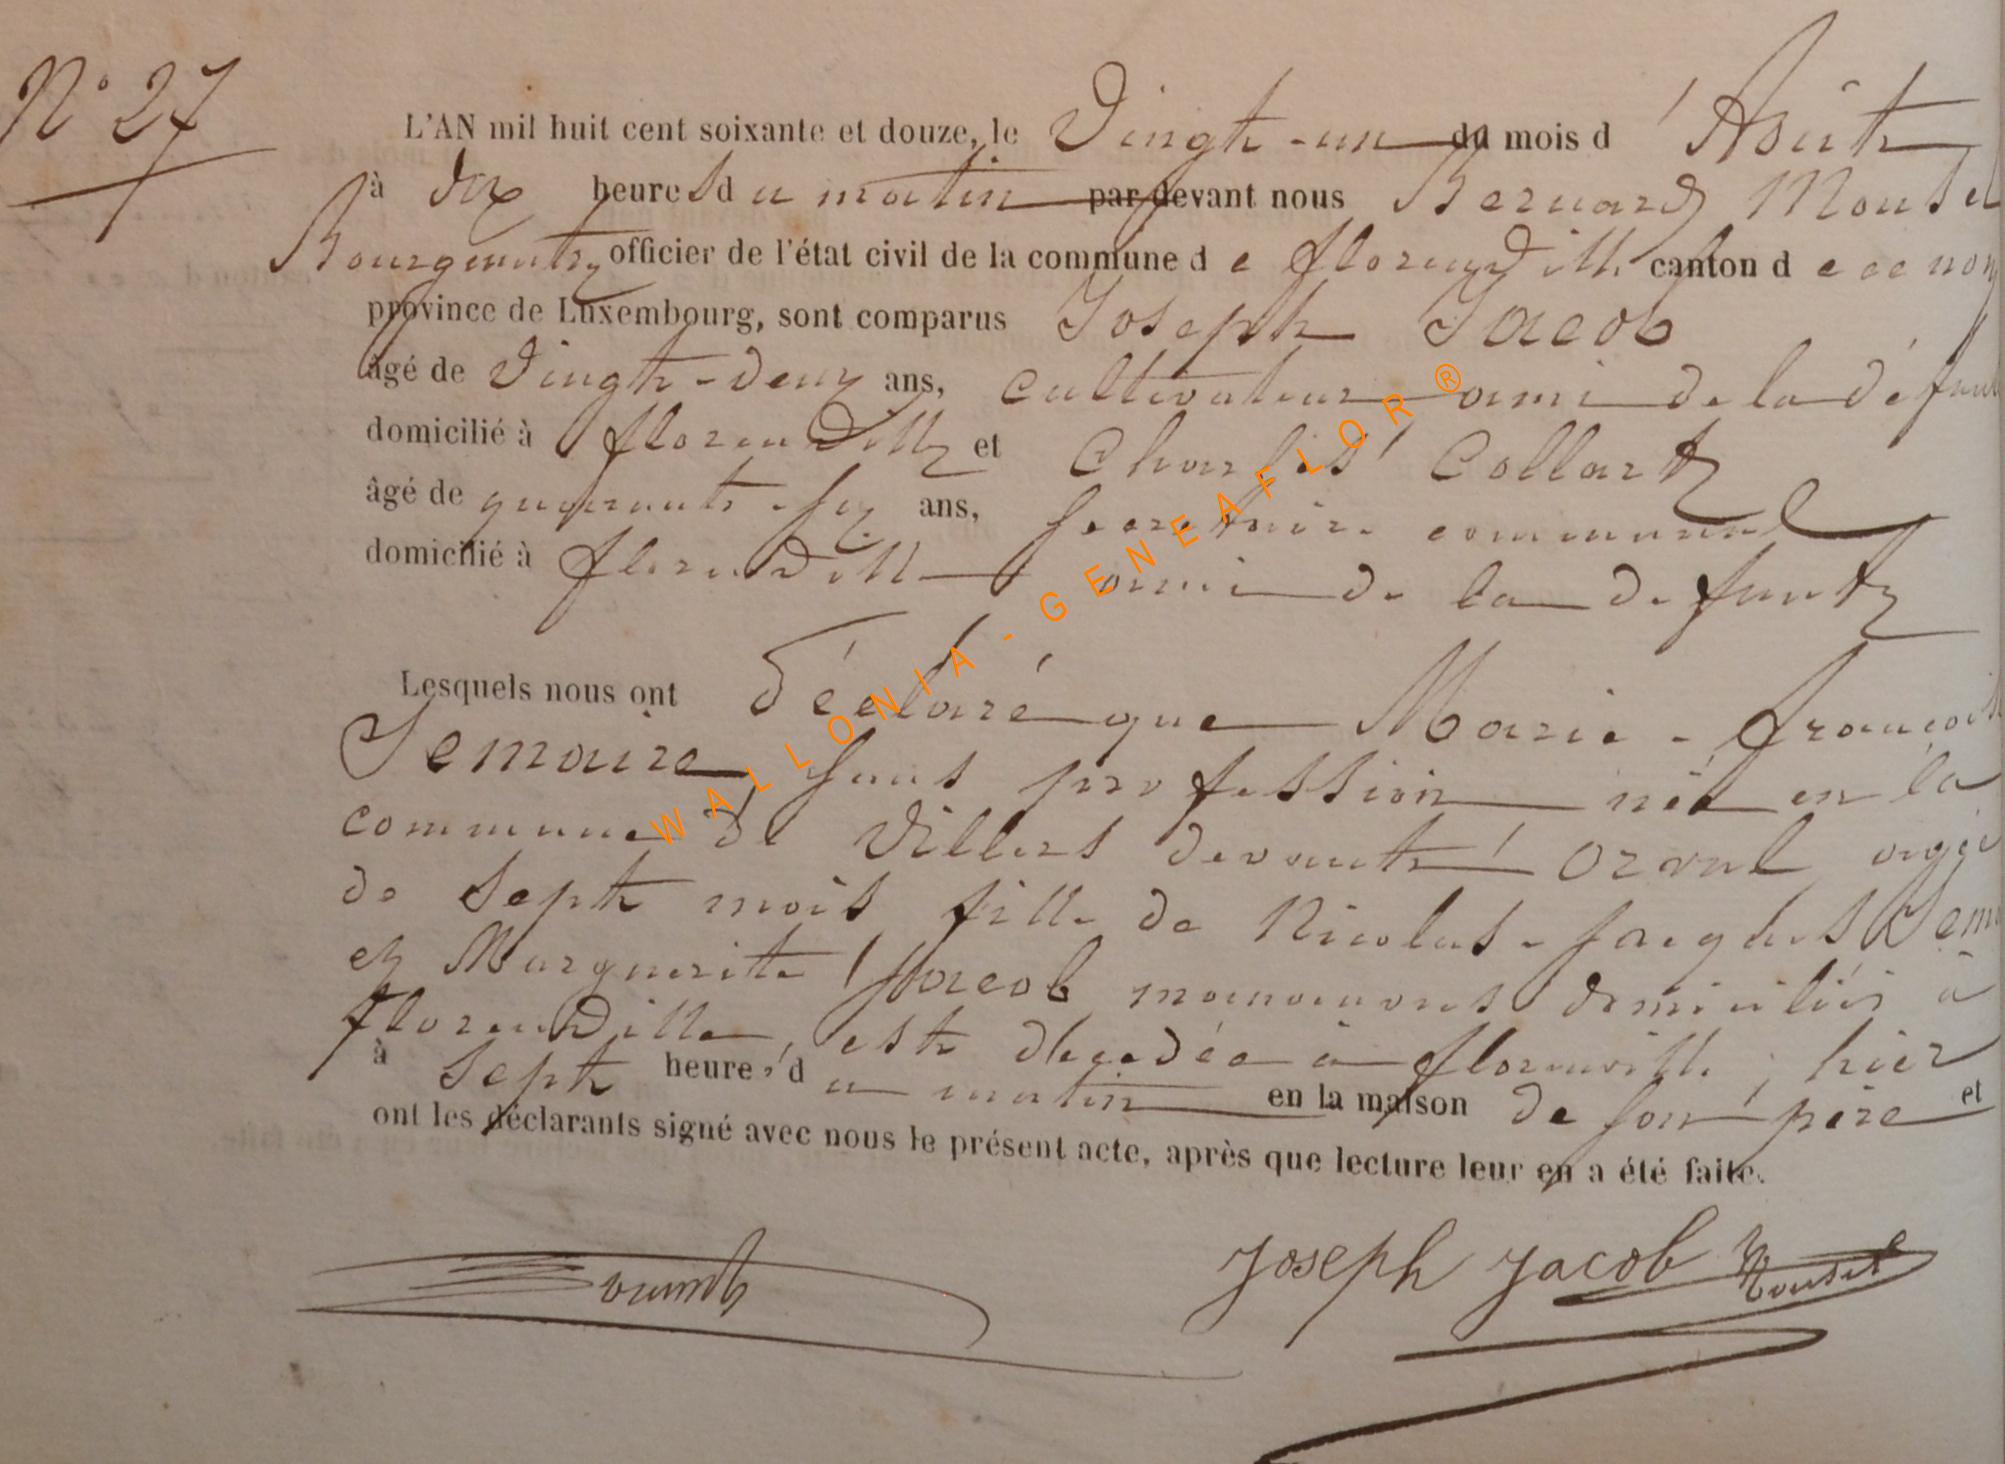 N° 27
L'AN mil huit cent soixante et douze, le Vingt-un du mois d'Aoút
à dix heures du matin par devant nous Bernard Mousel
Bourgmestre officier de l'état civil de la commune de florenville canton de ce nom
province de Luxembourg, sont comparus Joseph Jacob
âgé de Vingt-deux ans, cultivateur ami de la défunte
domicilié à florenville et Charles Collart
âgé de quarante-six ans, secretaire communal
domicilié à florenville ami de la defunte
Lesquels nous ont déclaré que Marie-françoise
Semaire sans profession née en la
commune de Villers devant Orval agée
de sept mois fille de Nicolas-Jacques Sem
et Marguerite Jacob domiciliés à
florenville, est décedée à florenville, hier
à sept heures du matin en la maison de son père et
ont les déclarants signé avec nous le présent acte, après que lecture leur en a été faite.
Joseph Jacob Mousel
WALLONIA-GENEAFLOR®